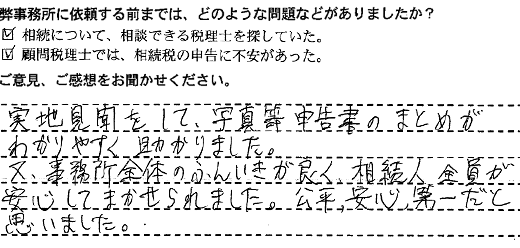 弊事務所に依頼する前までは、どのような問題などがありましたか？
☑ 相続について、相談できる税理士を探していた。
☑ 顧問税理士では、相続税の申告に不安があった。
ご意見、ご感想をお聞かせください。
実地見聞をして、写真等申告書のまとめが
わかりやすく助かりました。
又、事務所全体のふんいきが良く、相続人全員が
安心してまかせられました。公平,安心,第一だと
思いました。